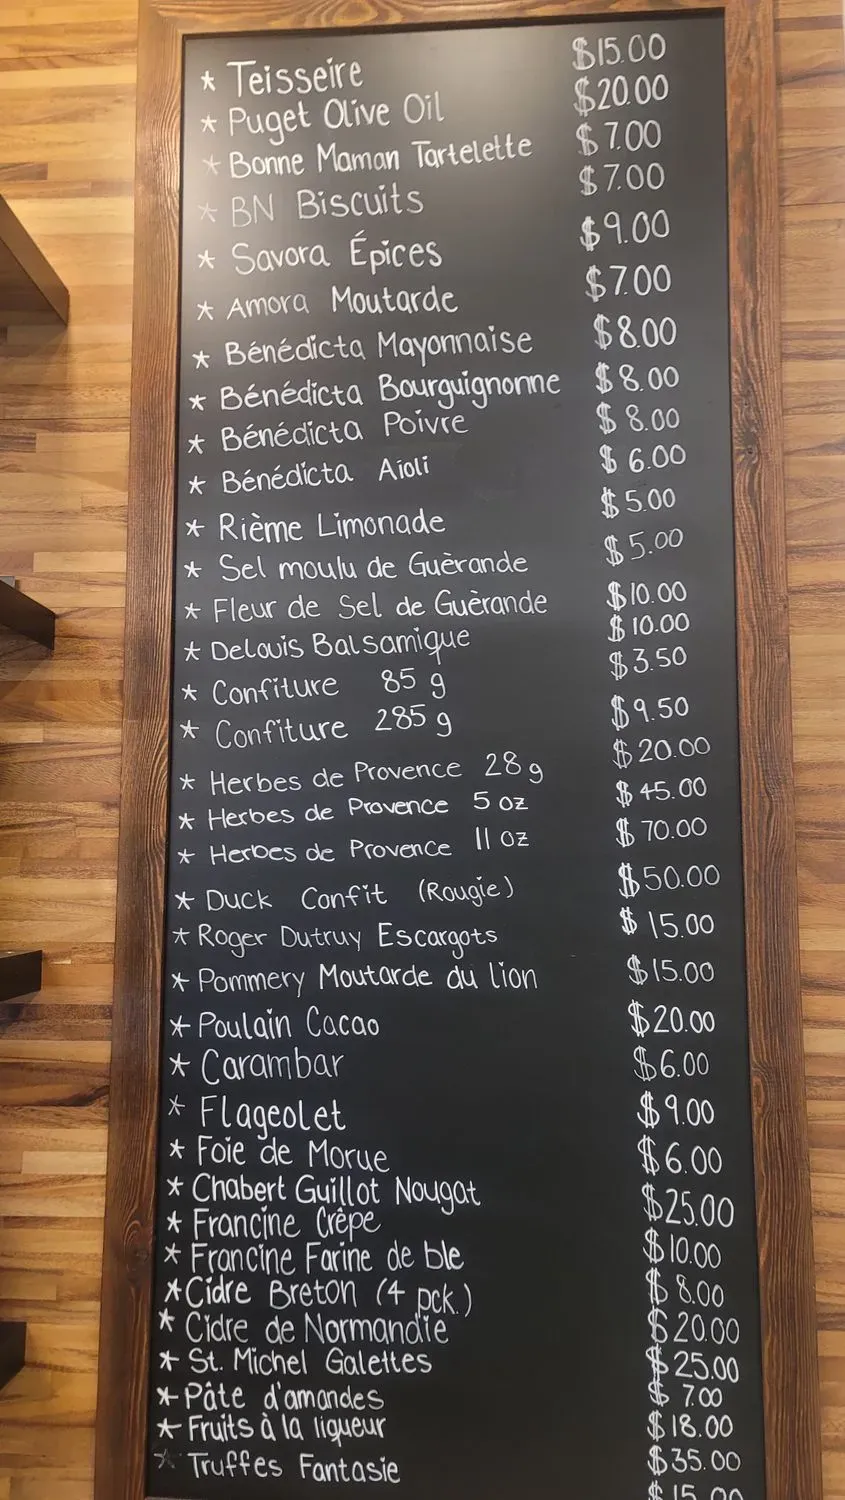 * Teisseire $15.00
* Puget Olive Oil $20.00
* Bonne Maman Tartelette $7.00
* BN Biscuits $7.00
* Savora Épices $9.00
* Amora Moutarde $7.00
* Bénédicta Mayonnaise $8.00
* Bénédicta Bourguignonne $8.00
* Bénédicta Poivre $8.00
* Bénédicta Aioli $6.00
* Rième Limonade $5.00
* Sel moulu de Guèrande $5.00
* Fleur de Sel de Guèrande $10.00
* Delouis Balsamique $10.00
* Confiture 85 g $3.50
* Confiture 285 g $9.50
* Herbes de Provence 28 g $20.00
* Herbes de Provence 5 oz $45.00
* Herbes de Provence 11 oz $70.00
* Duck Confit (Rougie) $50.00
* Roger Dutruy Escargots $15.00
* Pommery Moutarde du lion $15.00
* Poulain Cacao $20.00
* Carambar $6.00
* Flageolet $9.00
* Foie de Morue $6.00
* Chabert Guillot Nougat $25.00
* Francine Crêpe $10.00
* Francine Farine de ble $8.00
* Cidre Breton (4 pck.) $20.00
* Cidre de Normandie $25.00
* St. Michel Galettes $7.00
* Pâte d'amandes $18.00
* Fruits à la liqueur $35.00
* Truffes Fantasie $15.00